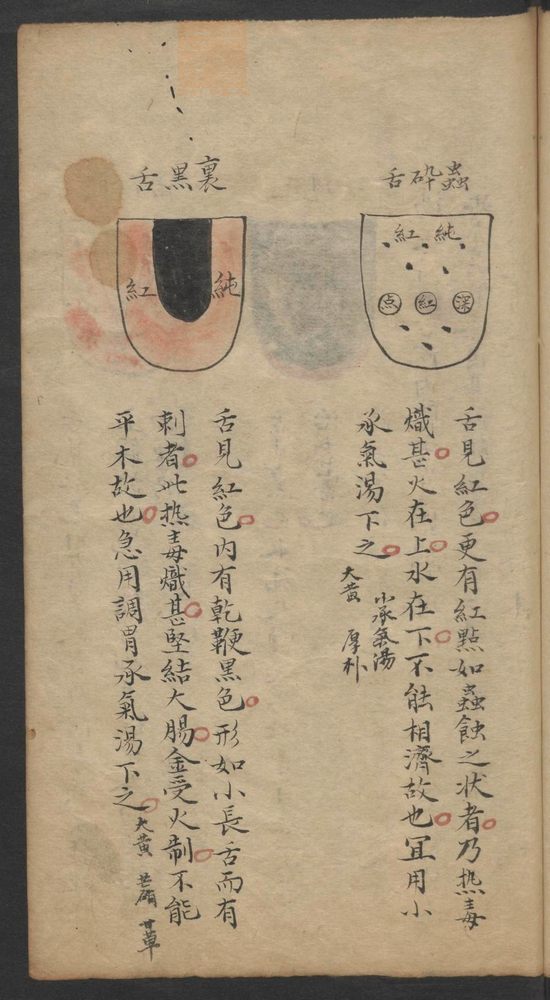 蟲碎舌
純紅
深紅点
舌見紅色更有紅點如蟲蝕之状者乃热毒
熾甚火在上水在下不能相濟故也宜用小
承氣湯下之
小承氣湯
大黄 厚朴
裏黑舌
純紅
舌見紅色内有乾鞕黑色形如小長舌而有
刺者此热毒熾甚堅結大腸金受火制不能
平木故也急用調胃承氣湯下之
大黄 芒硝 甘草